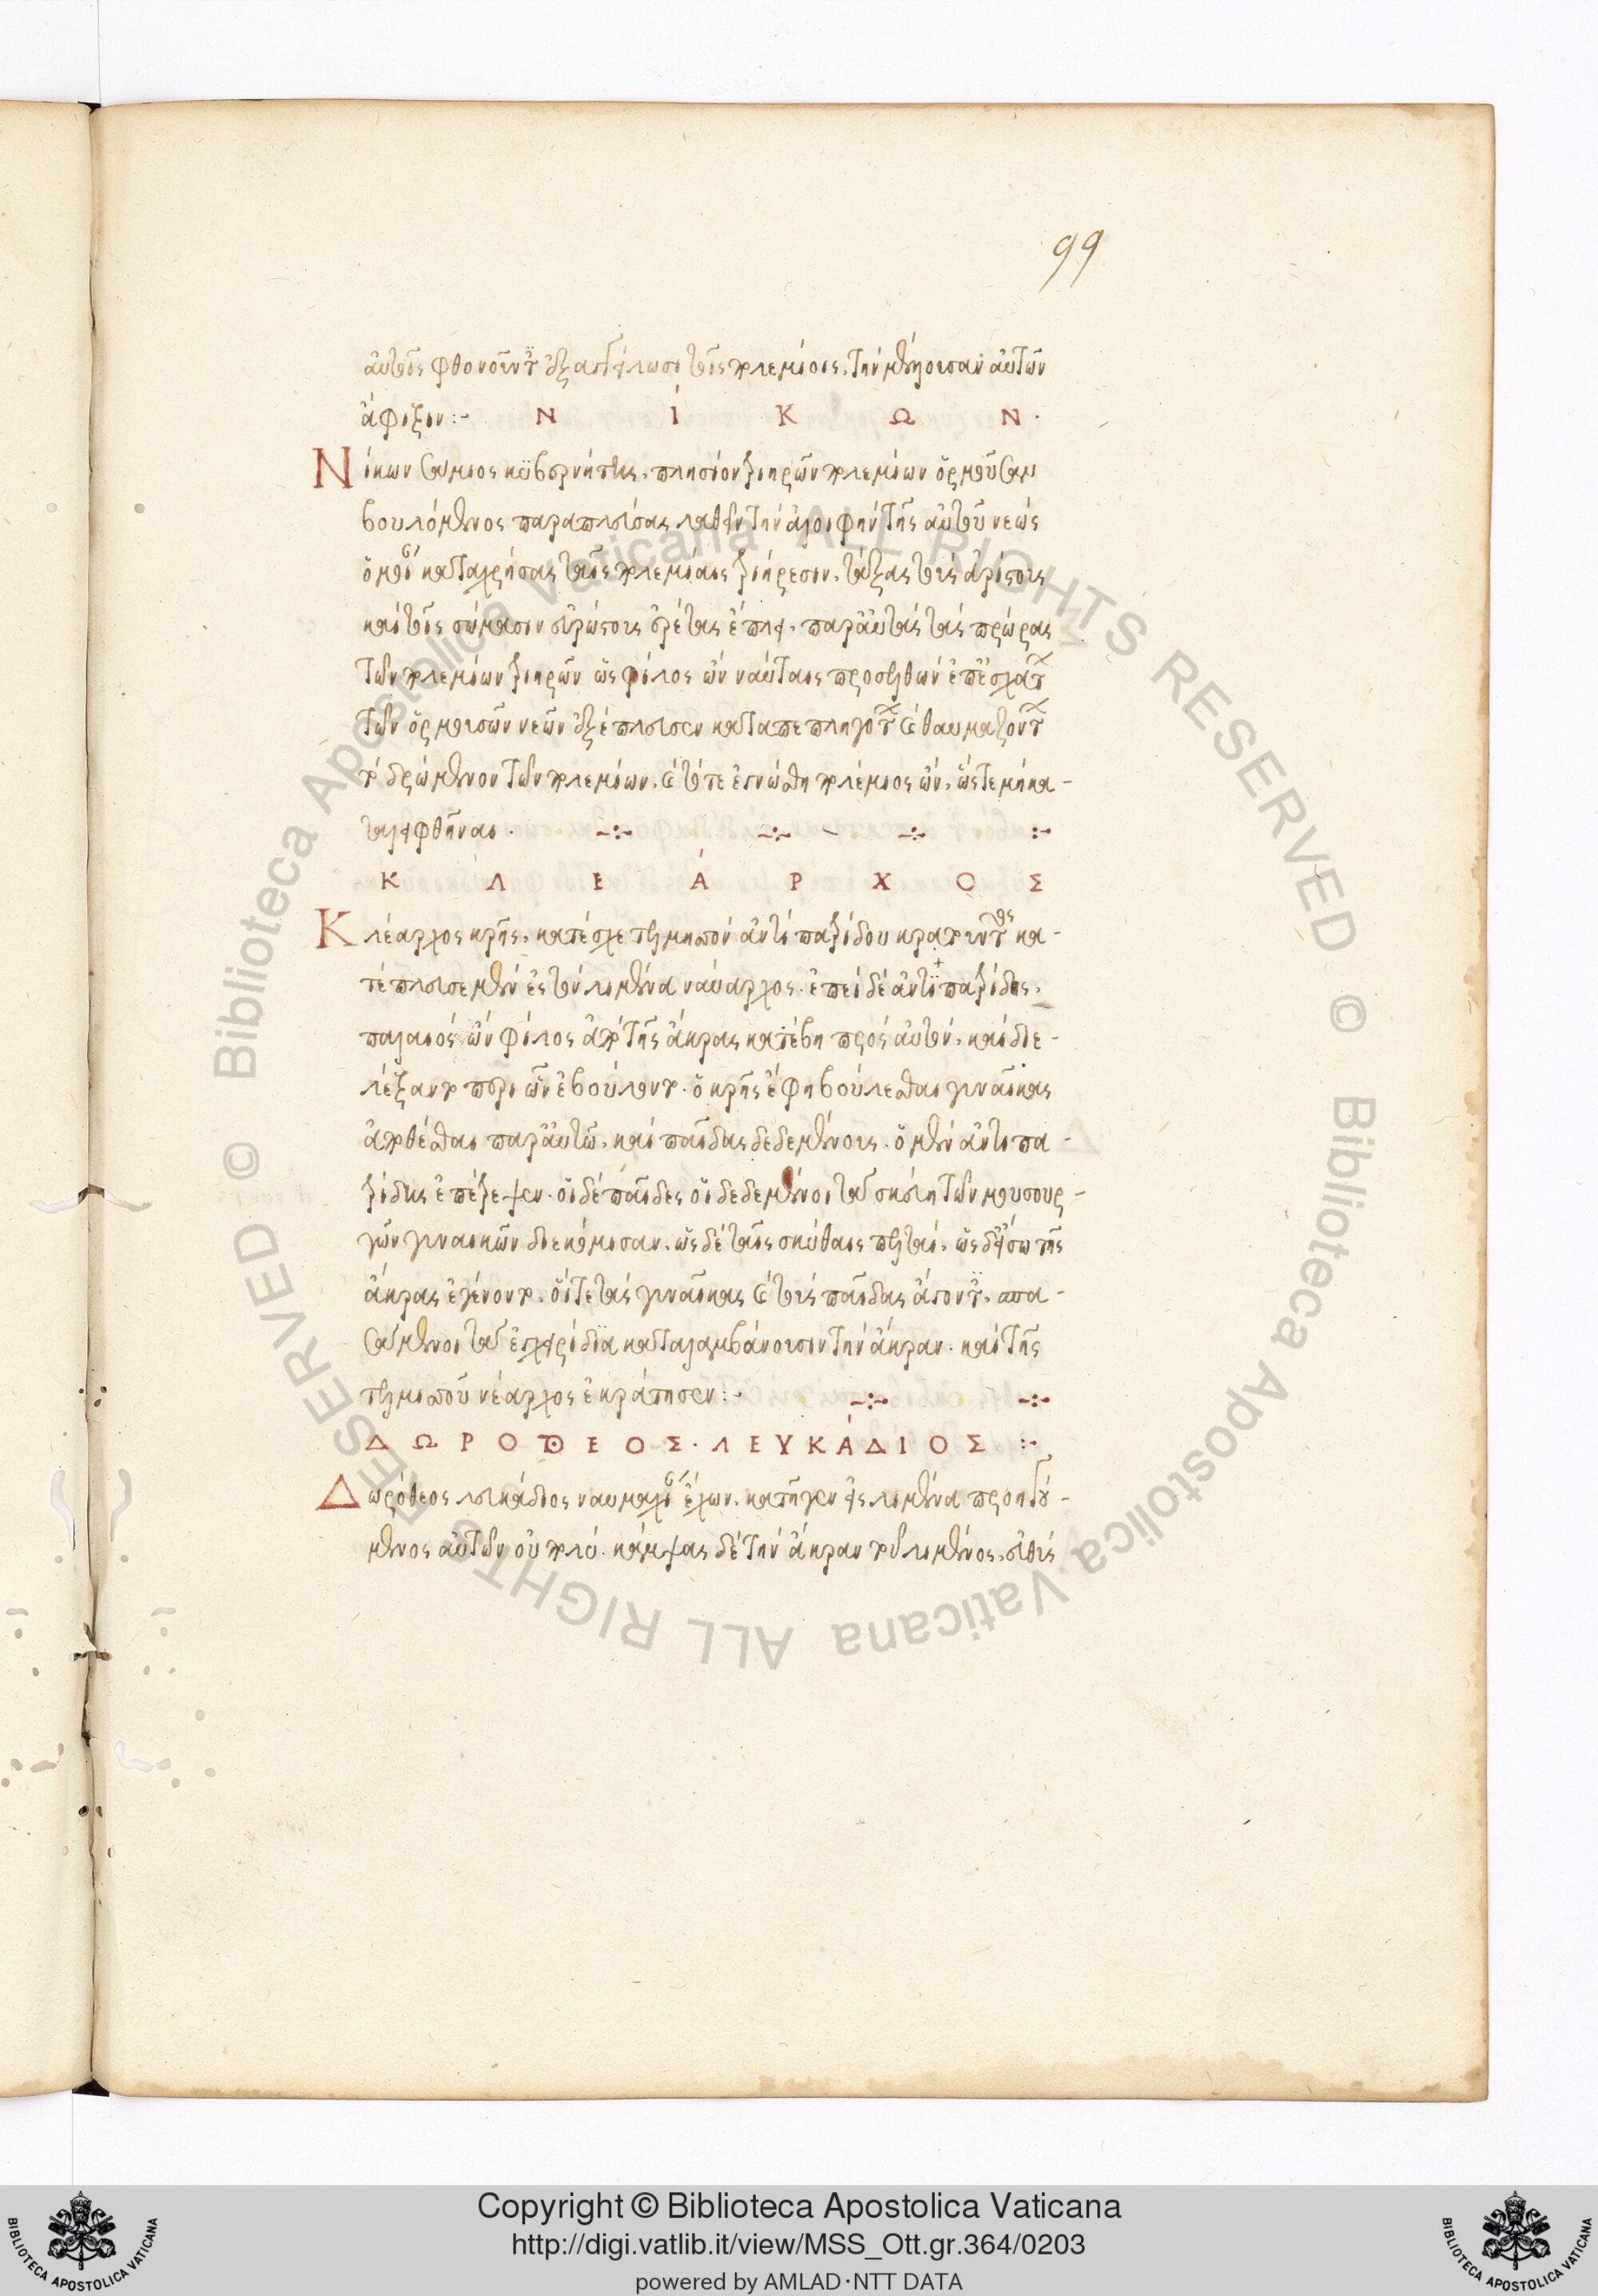 99
αὐτοῖς φθονοῦντες ἐξαγγείλωσι τοῖς πολεμίοις, τὴν μέλλουσαν αὐτῶν
ἄφιξιν:- Ν Ί Κ Ω Ν ·
Νίκων σάμιος κυβερνήτης, πλησίον τριηρῶν πολεμίων ὁρμοῦσαν
βουλόμενος παραπλεύσας λαθεῖν τὴν ἀλοιφὴν τῆς αὐτοῦ νεώς
ὁμοίαν καταχρήσας ταῖς πολεμίαις τριήρεσιν, τάξας τοὺς ἀρίστους
καὶ τοῖς σώμασιν εὐρώστους ἐρέτας ἔπλει, παρ' αὐτὰς τὰς πρώρας
τῶν πολεμίων τριηρῶν ὡς φίλος ὢν ναύταις προσελθὼν
τῶν ὁρμουσῶν νεῶν ἐξέπλευσεν καταπεπληγότων καὶ θαυμαζόντων
τὸ δρώμενον τῶν πολεμίων, καὶ τότε ἐγνώσθη πολέμιος ὤν, ὥστε μὴ κα-
ταλειφθῆναι.
Κ Λ Ε Ά Ρ Χ Ο Σ
Κλέαρχος κρῆς, κατέσχε τελμησὸν ἀντιπατρίδου κρατοῦντος κα-
τέπλευσε μὲν ἐς τὸν λιμένα ναύαρχος. ἐπεὶ δὲ ἀντιπατρίδης,
παλαιὸς ὢν φίλος ἀπὸ τῆς ἄκρας κατέβη πρὸς αὐτόν, καὶ διε-
λέξαντο περὶ ὧν ἐβούλοντο. ὁ κρῆς ἔφη βούλεσθαι γυναῖκας
ἀποθέσθαι παρ' αὐτῷ, καὶ παῖδας δεδεμένους. ὁ μὲν ἀντιπα-
τρίδης ἐπέτρεψεν. οἱ δὲ παῖδες οἱ δεδεμένοι τὰ σκεύη τῶν μουσουρ-
γῶν γυναικῶν διεκόμισαν. ὡς δὲ ταῖς σκύθαις ὡς δ' εἴσω τῆς
ἄκρας ἐγένοντο, οἵ τε τὰς γυναῖκας καὶ τοὺς παῖδας ἄγοντες, σπα-
σάμενοι τὰ ἐγχειρίδια καταλαμβάνουσιν τὴν ἄκραν. καὶ τῆς
τελμισοῦ νέαρχος ἐκράτησεν:-
Δ Ω Ρ Ο Θ Ε Ο Σ · Λ Ε Υ Κ Ά Δ Ι Ο Σ :-
Δωρόθεος λευκάδιος ναυμαχίαν ἔχων, κατῆγεν εἰς λιμένα προηγού-
μενος αὐτῶν οὐ πολύ. κάμψας δὲ τὴν ἄκραν τοῦ λιμένος, εὐθὺς
Copyright © Biblioteca Apostolica Vaticana
http://digi.vatlib.it/view/MSS_Ott.gr.364/0203
powered by AMLAD·NTT DATA
BIBLIOTECA APOSTOLICA VATICANA
BIBLIOTECA APOSTOLICA VATICANA
© Biblioteca Apostolica Vaticana ALL RIGHTS RESERVED © Biblioteca Apostolica Vaticana ALL RIGHTS RESERVED